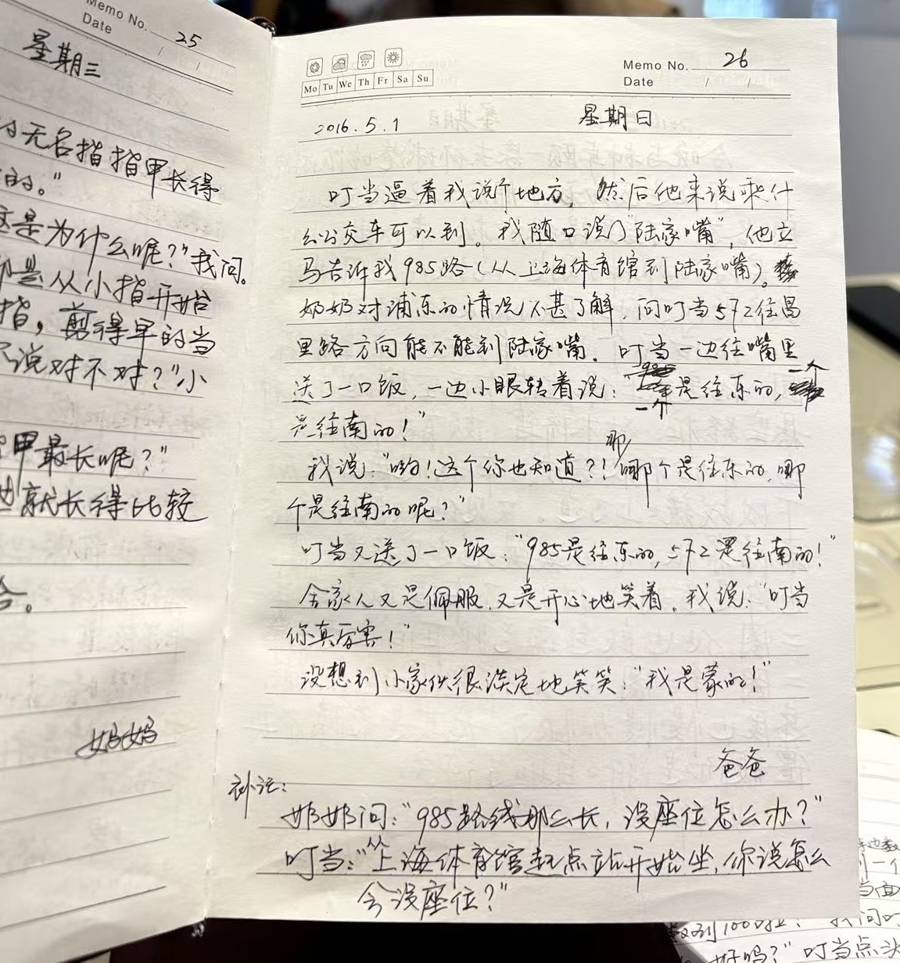 Memo No. 25
Date / /
星期三
无名指指甲长得
的。"
这是为什么呢?"我问。
是从小指开始
指,剪得早的当
说对不对?"小
甲最长呢?"
就长得比较
妈妈
Memo No. 26
Mo Tu We Th Fr Sa Su
Date / /
2016.5.1 星期日
叮当逼着我说个地方,然后他来说乘什
么公交车可以到。我随口说了"陆家嘴",他立
马告诉我985路(从上海体育馆到陆家嘴)。
奶奶对浦东的情况不甚了解,问叮当572往昌
里路方向能不能到陆家嘴。叮当一边往嘴里
送了一口饭,一边小眼转着说:"一个是往东的,一个
是往南的!"
我说:"哟!这个你也知道?!那哪个是往东的,哪
个是往南的呢?"
叮当又送了一口饭:"985是往东的,572是往南的!"
全家人又是佩服,又是开心地笑着。我说:"叮当
你真厉害!"
没想到小家伙很淡定地笑笑:"我是蒙的!"
爸爸
补记:
奶奶问:"985路线那么长,没座位怎么办?"
叮当:"从上海体育馆起点站开始坐,你说怎么
会没座位?"
到100
我问叮
好吗?"叮当点头